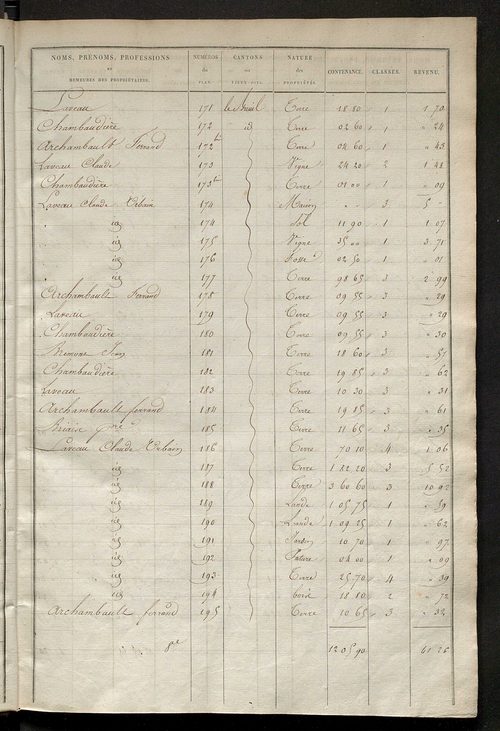 NOMS, PRÉNOMS, PROFESSIONS ET DEMEURES DES PROPRIÉTAIRES. NUMÉROS du PLAN. CANTONS ou LIEUX-DITS. NATURE des PROPRIÉTÉS. CONTENANCE. CLASSES. REVENU.
Laveau 171 Terre 18 80 1 1 70
Chambaudière 172 id Terre 02 60 1 " 24
Archambault Ferrand 172 Terre 04 60 1 " 43
Laveau Claude 173 Vigne 24 20 2 1 98
Chambaudière 173 Terre 01 00 1 " 09
Laveau Claude Urbain 174 Maison " " 3 5 "
id 174 Sol 11 90 1 1 07
id 175 Vigne 35 00 1 3 71
id 176 02 50 1 " 01
id 177 Terre 98 65 3 2 99
Archambault Ferrand 178 Terre 09 55 3 " 29
Laveau 179 Terre 09 55 3 " 29
Chambaudière 180 Terre 09 55 3 " 30
181 Terre 18 60 3 " 57
Chambaudière 182 Terre 19 85 3 " 62
Laveau 183 Terre 10 30 3 " 31
Archambault ferrand 184 Terre 19 85 3 " 61
185 Terre 11 65 3 " 35
Laveau Claude Urbain 186 Terre 70 10 4 1 06
id 187 Terre 1 82 20 3 5 52
id 188 Terre 3 60 60 3 10 92
id 189 Lande 1 05 75 1 " 59
id 190 Lande 1 09 25 1 " 62
id 191 Jardin 10 70 1 " 97
id 192 Pature 04 00 1 " 09
id 193 Terre 25 70 4 " 39
id 194 bois 18 10 2 " 72
Archambault ferrand 195 Terre 10 65 3 " 32
13 05 90 41 26